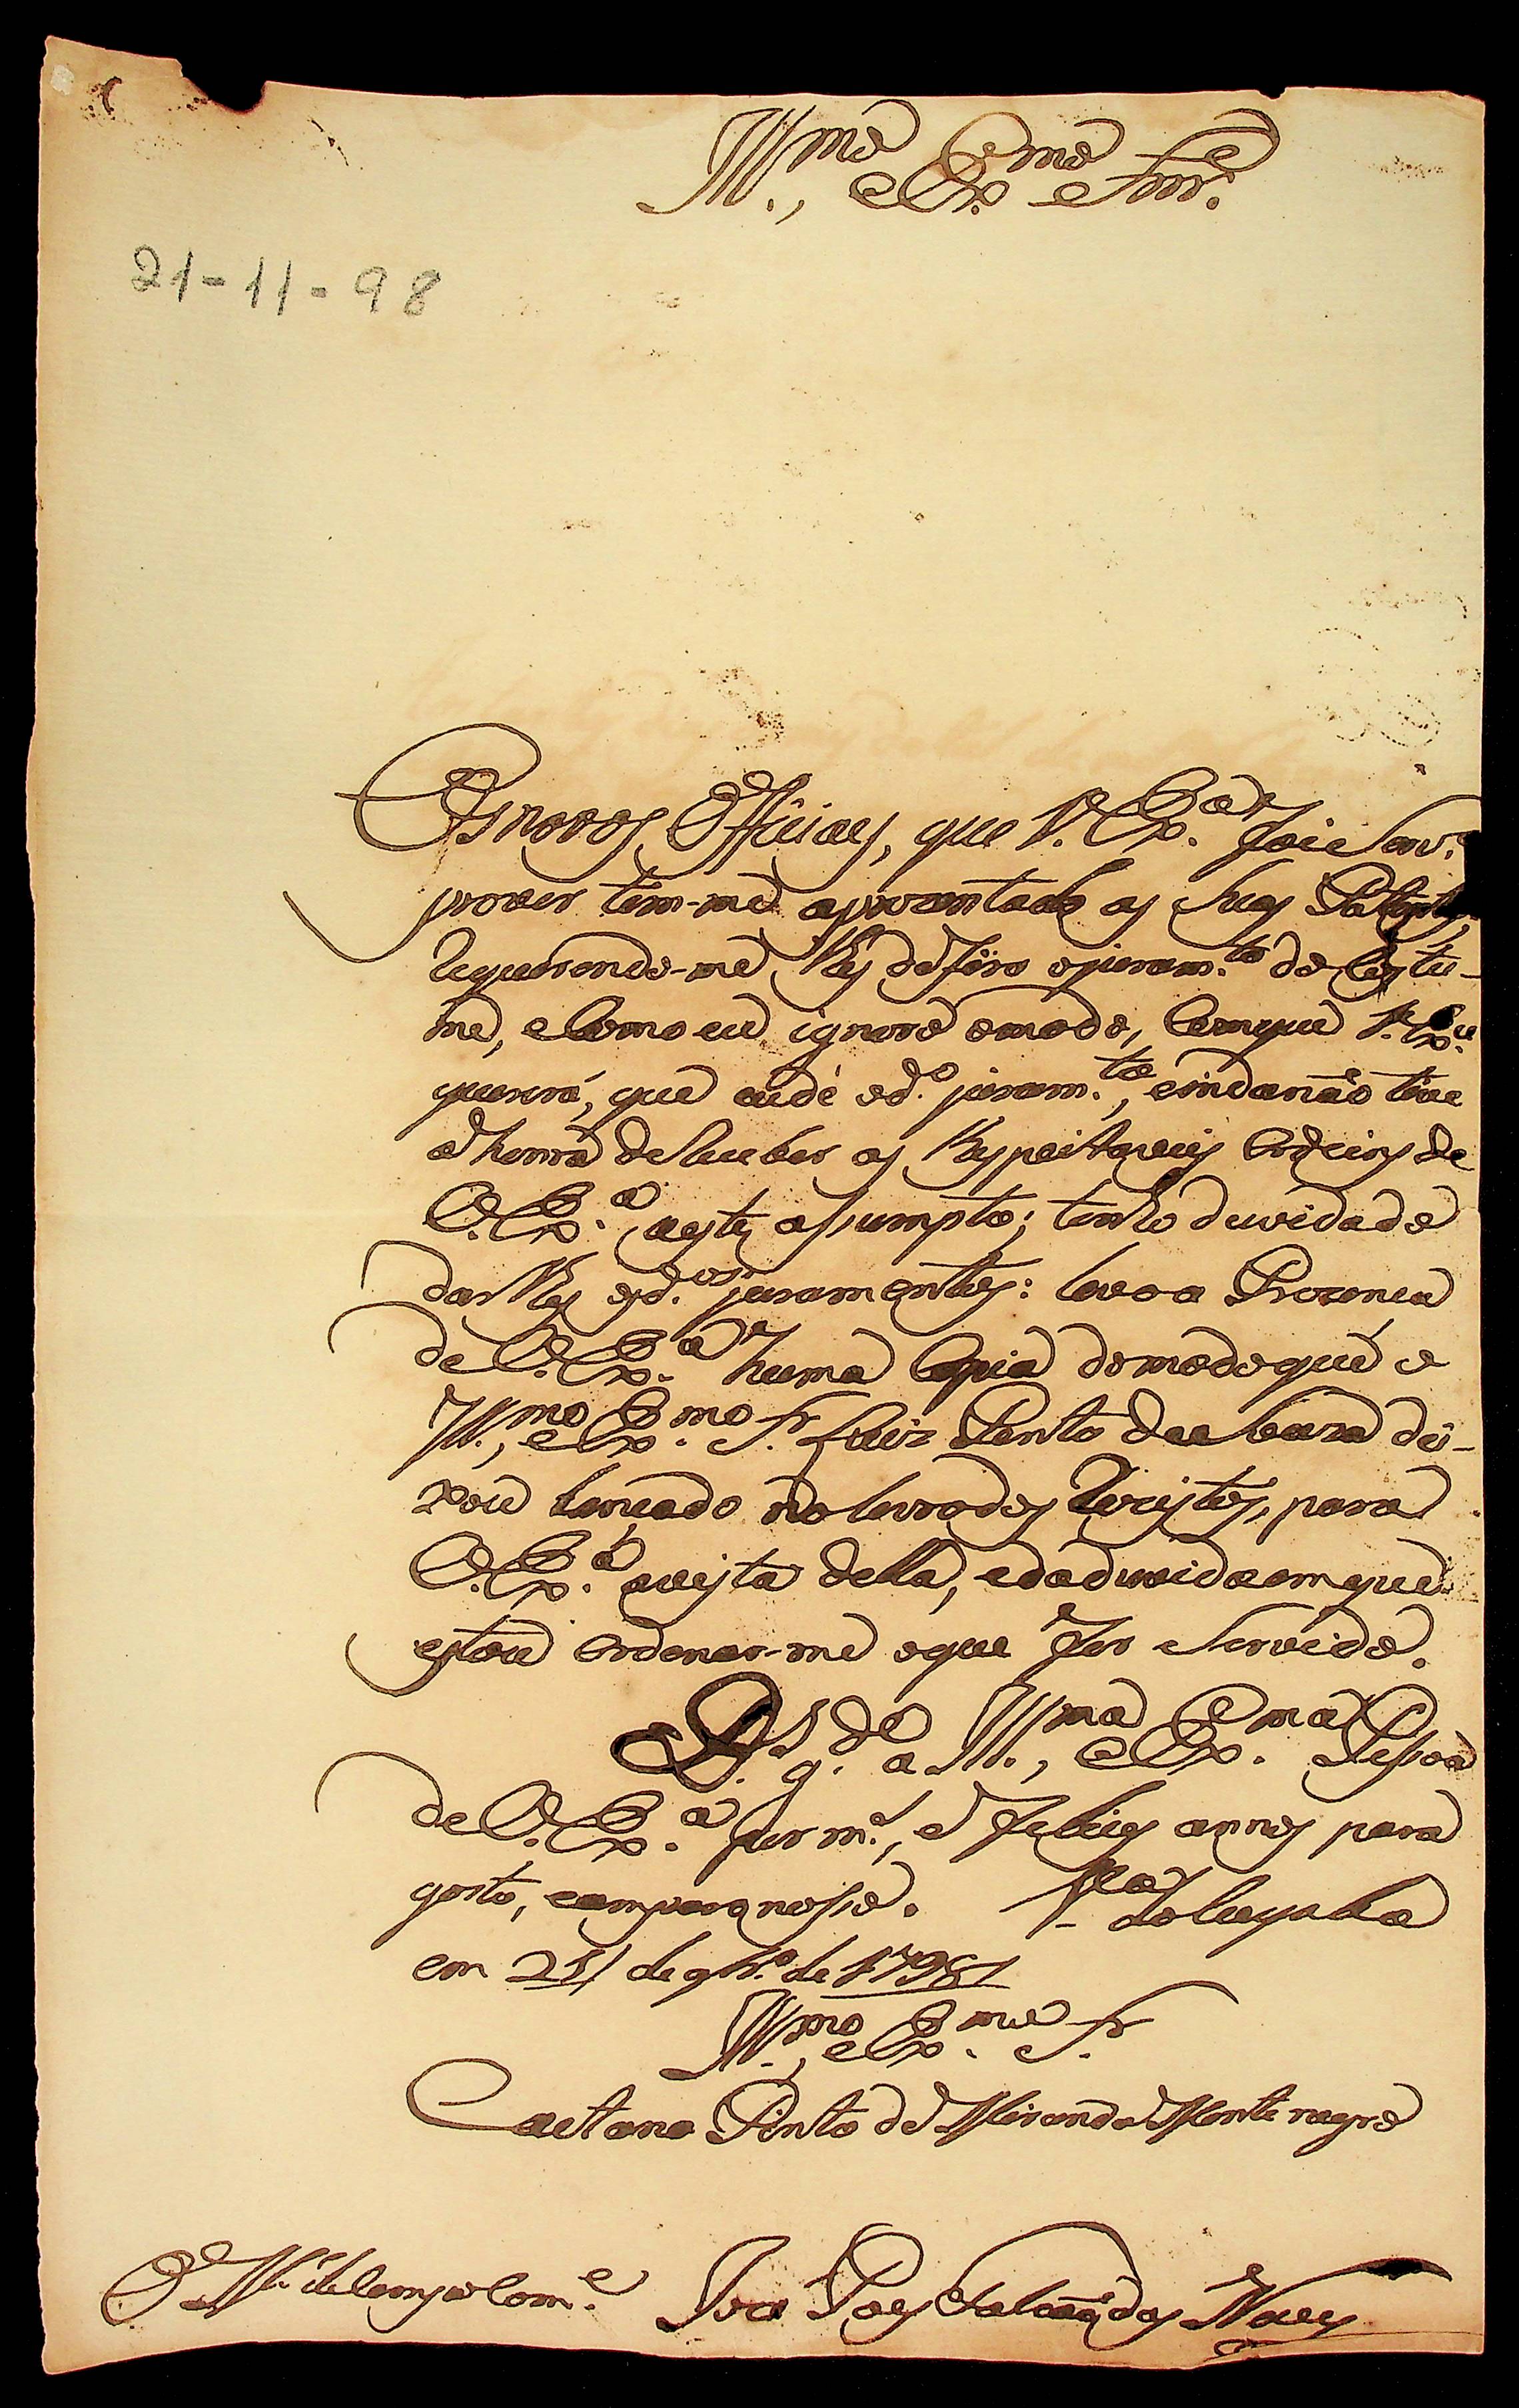 Ill.mo, e Ex.mo Snr.
21-11-98
Os novos Officiaes, que V. Ex.a foi Serv.o
prover tem-me aprezentado as suas Patentes
requerendo-me lhes defira o juram.to do custu-
me, e como eu ignoro o modo, com que V. Ex.a
quererá, que eu dê o d.o juram.to, e inda não tive
a honra de receber as Respeitaveis Ordens de
V. Ex.a a este assumpto; tenho duvida de
dar lhes os d.os juramentos: levo a Prezença
de V. Ex.a huma Copia do modo que o
Ill.mo, e Ex.mo Sr. Luiz Pinto de Souza dei-
xou lançado no livro dos Registos, para
V. Ex.a a vista della, e da duvida em que
estou ordenar-me o que for Servido.
D.s g.de a Ill.ma, e Ex.ma Pessoa
de V. Ex.a por m.s, e felices annos para
gosto, e amparo nosso. V.a do Cuyaba
em 21 de 9br.o de 1798
Ill.mo, e Ex.mo Sr.
Caetano Pinto de Miranda Montenegro
O M.e de Campo Com.e Joze Paes Falcão das Neves